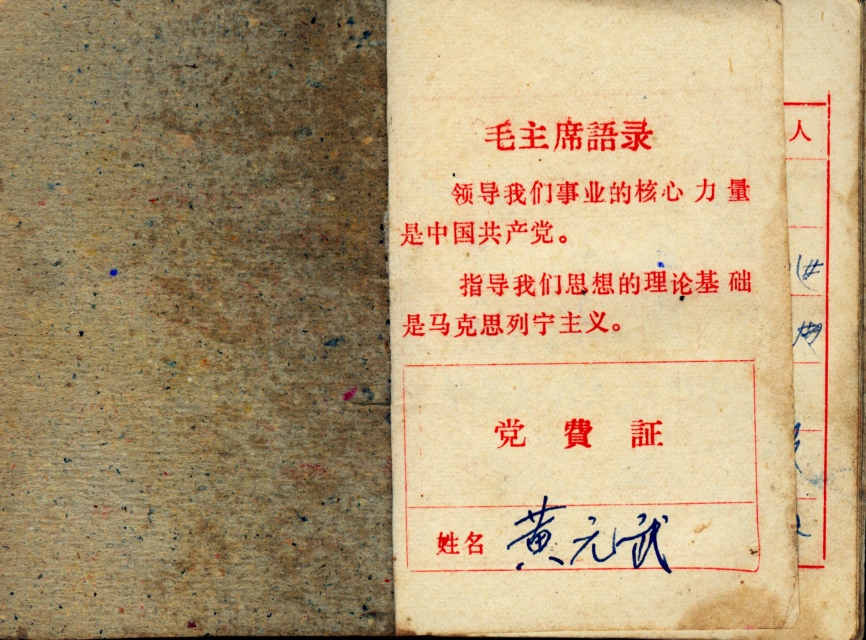 毛主席語录
领导我们事业的核心力量
是中国共产党。
指导我们思想的理论基础
是马克思列宁主义。
党費証
姓名 黄元武
人